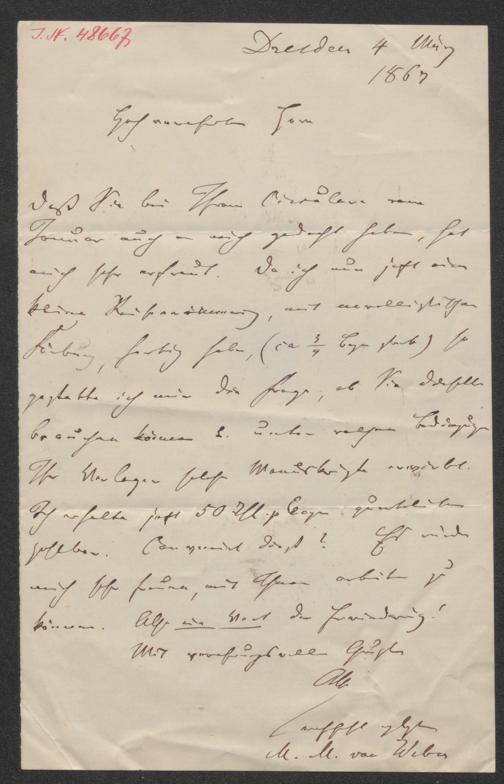 J.N. 48667
Dresden 4 März
1867
Hochverehrter Herr
Daß Sie bei Ihrem Circulare vom
Januar auch an mich gedacht haben, hat
mich sehr erfreut. Da ich nun jetzt eine
kleine Reiseerinnerung, mit novellistischer
Färbung, fertig habe, (ca 3/4 Bogen stark) so
gestatte ich mir die Frage, ob Sie dieselbe
brauchen können u. unter welchen Bedingungen
Ihr Verleger solche Manuskripte erwirbt.
Ich erhalte jetzt 50 p Bogen
Convenirt dies? Es würde
mich sehr freuen, mit Ihnen arbeiten zu
können. Also ein Wort der Erwiederung!
Mit verehrungsvollen Grüßen
Ihr
M. M. von Weber